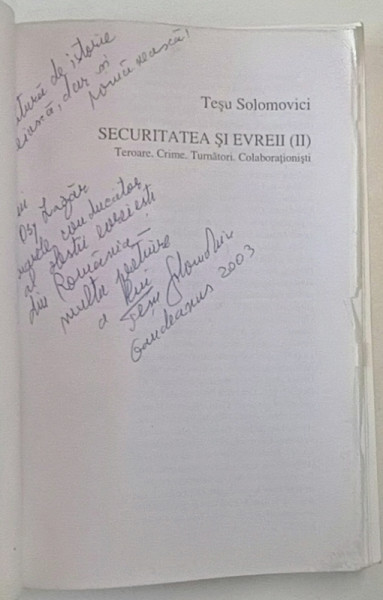 de istorie
dar și
românească!
Teșu Solomovici
SECURITATEA ȘI EVREII (II)
Teroare. Crime. Turnători. Colaboraționiști
Lazăr
conducător
al obștii evreiești
din România
multă prețuire
a lui
Teșu Solomovici
Gaudeamus 2003